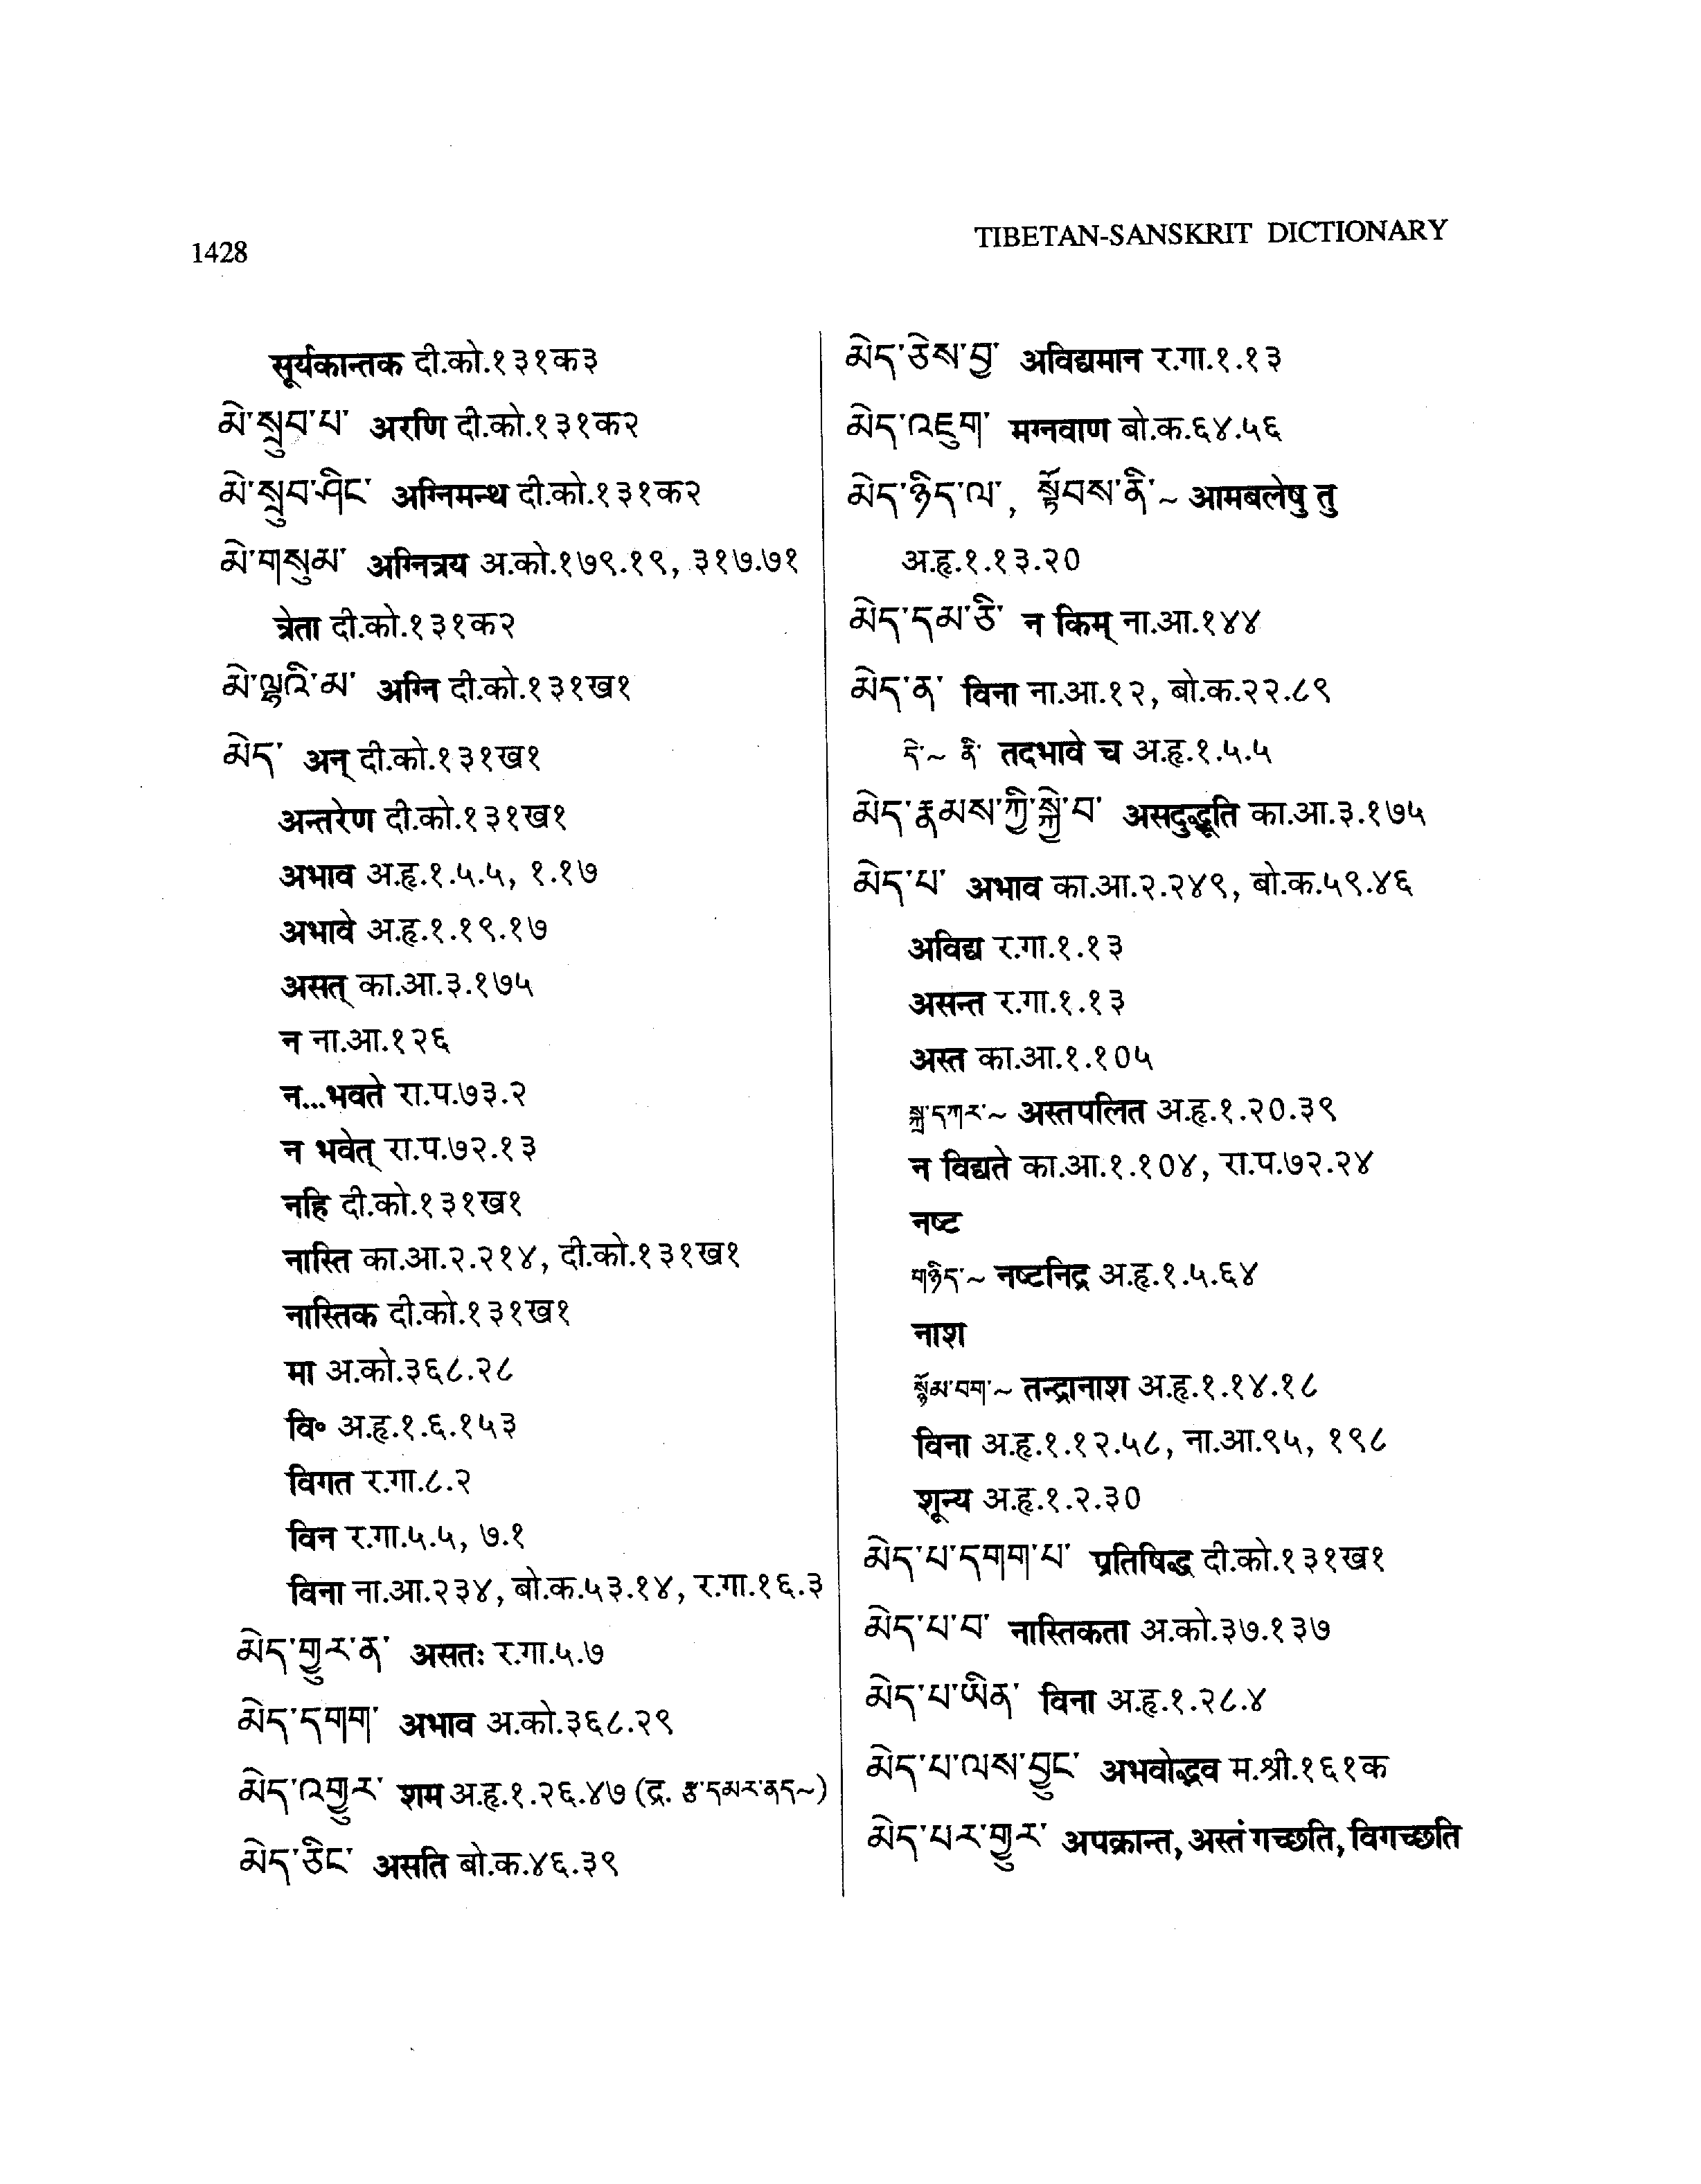 1428
TIBETAN-SANSKRIT DICTIONARY
सूर्यकान्तक दी.को.१३१क३
མེ་སྲུབ་པ་ अरणि दी.को.१३१क२
མེ་སྲུབ་ཤིང་ अग्निमन्थ दी.को.१३१क२
མེ་གསུམ་ अग्नित्रय अ.को.१७९.१९, ३१७.७१
त्रेता दी.को.१३१क२
མེ་ལྷའི་མ་ अग्नि दी.को.१३१ख१
མེད་ अन् दी.को.१३१ख१
अन्तरेण दी.को.१३१ख१
अभाव अ.हृ.१.५.५, १.१७
अभावे अ.हृ.१.१९.१७
असत् का.आ.३.१७५
न ना.आ.१२६
न...भवते रा.प.७३.२
न भवेत् रा.प.७२.१३
नहि दी.को.१३१ख१
नास्ति का.आ.२.२१४, दी.को.१३१ख१
नास्तिक दी.को.१३१ख१
मा अ.को.३६८.२८
वि॰ अ.हृ.१.६.१५३
विगत र.गा.८.२
विन र.गा.५.५, ७.१
विना ना.आ.२३४, बो.क.५३.१४, र.गा.१६.३
མེད་གྱུར་ན་ असतः र.गा.५.७
མེད་དགག་ अभाव अ.को.३६८.२९
མེད་འགྱུར་ शम अ.हृ.१.२६.४७ (द्र. རྩ་དམར་ནད~)
མེད་ཅིང་ असति बो.क.४६.३९
མེད་ཅེས་བྱ་ अविद्यमान र.गा.१.१३
མེད་འཇུག་ मग्नवाण बो.क.६४.५६
མེད་ཉིད་ལ་, སྟོབས་ནི་~ आमबलेषु तु
अ.हृ.१.१३.२०
མེད་དམ་ཅི་ न किम् ना.आ.१४४
མེད་ན་ विना ना.आ.१२, बो.क.२२.८९
དེ་~ ནི་ तदभावे च अ.हृ.१.५.५
མེད་རྣམས་ཀྱི་སྐྱེ་བ་ असदुद्भूति का.आ.३.१७५
མེད་པ་ अभाव का.आ.२.२४९, बो.क.५९.४६
अविद्य र.गा.१.१३
असन्त र.गा.१.१३
अस्त का.आ.१.१०५
སྐྲ་དཀར་~ अस्तपलित अ.हृ.१.२०.३९
न विद्यते का.आ.१.१०४, रा.प.७२.२४
नष्ट
གཉིད་~ नष्टनिद्र अ.हृ.१.५.६४
नाश
སྙོམ་བག་~ तन्द्रानाश अ.हृ.१.१४.१८
विना अ.हृ.१.१२.५८, ना.आ.९५, १९८
शून्य अ.हृ.१.२.३०
མེད་པ་དགག་པ་ प्रतिषिद्ध दी.को.१३१ख१
མེད་པ་བ་ नास्तिकता अ.को.३७.१३७
མེད་པ་ཡིན་ विना अ.हृ.१.२८.४
མེད་པ་ལས་བྱུང་ अभवोद्भव म.श्री.१६१क
མེད་པར་གྱུར་ अपक्रान्त, अस्तं गच्छति, विगच्छति